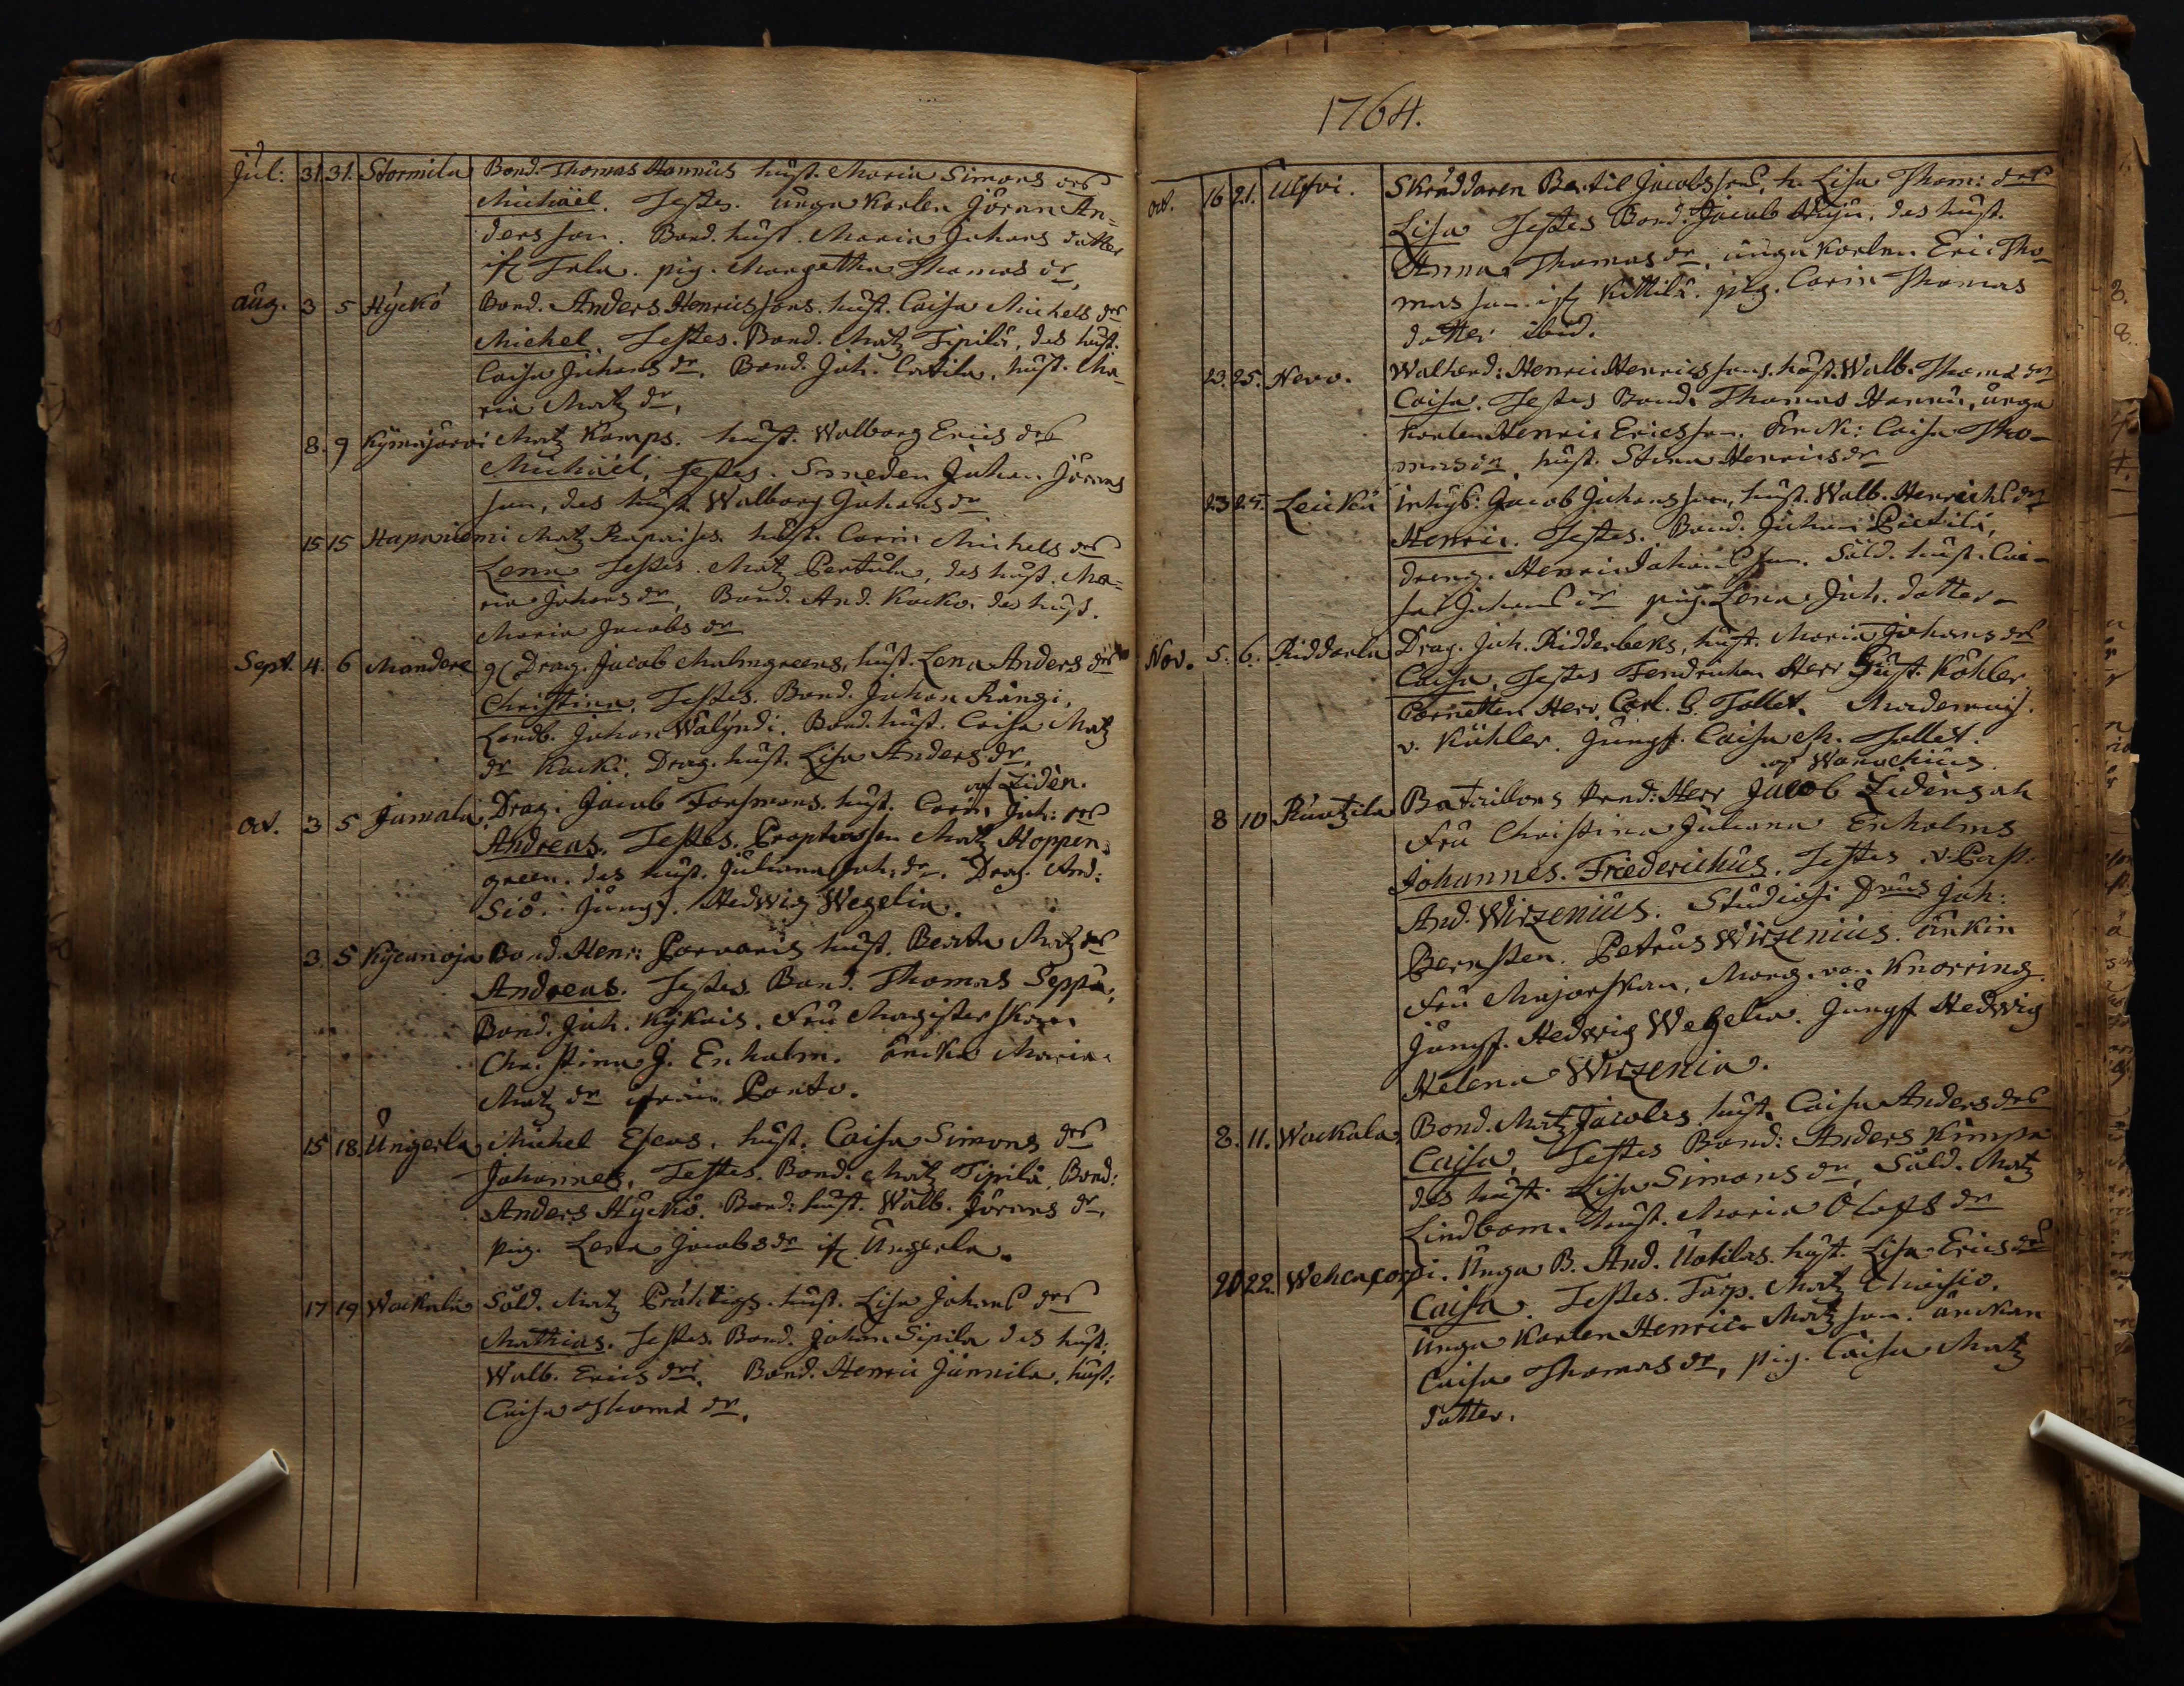 Jul: 31 31. Stormila Bond. Thomas Hannus hust. Maria Simons drs
Michäel. Testes. unga Karlen Jöran An=
ders son. Bond. hust. Maria Johans dotter
if Tala. pig. Margetha Thomas dr,
aug. 3 5 Hyckö Bond. Anders Henricssons. hust. Caisa Michels drs
Michel. Testes. Bond. Matz Sipilä, des hust.
Caisa Juhans dr. Bond. Joh. Catila, hust. Ma=
ria Matz dr,
8. 9 Kymäjärvi Matz Kamps. hust. Walborg Erics drs
Michäel, Testes. Smeden Juhan Jörans
son, des hust. Walborg Johans dr
15 15 Hapaniemi Matz Rapaises. hust. Carin Michels drs
Lena Testes. Matz Pertula, des hust. Ma=
ria Johans dr, Bond. And. Kocko. des hust.
Maria Jacobs dr
Sept. 4. 6 Mandere Drag. Jacob Malmgreens, hust. Lena Anders drs
Christina. Testes. Bond. Juhan Rängi,
Landb. Johan Walyndi. Bond. hust. Caisa Matz
dr Kocki. Drag. hust. Lisa Anders dr.
af Zidèn.
Oct. 3 5 Jamala Drag. Jacob Forssmans. hust. Carin Joh: drs
Andreas. Testes. Matz Hoppen=
green. des hust. Juliana Joh: dr. Drag. And:
Siö. Jungf. Hedwig Wegelia.
3. 5 Kycanoja Bond. Henr: Porvaris hust. Beata Matz drs
Andreas. Testes. Bond. Thomas Seppä,
Bond. Joh. Kykais. Fru Magisterskan
Christina J. Enholm. änka Maria
Matz dr ifrån Panto.
15 18. Ungerla Michel Escus. hust. Caisa Simons drs
Johannes. Testes. Bond. Matz Sipilä, Bond:
Anders Hyckö. Bond: hust. Walb. Jörans dr,
pig. Lena Jacobs dr if Ungerla.
17 19 Wackala Sold. Matz Präktigs. hust. Lisa Johans drs
Mathias. Testes. Bond. Johan Sipila des hust:
Walb. Erics dr. Bond. Henric Junnila. hust:
Caisa Thoma dr.
1764.
Oct. 16 21. Ulfvi. Skräddaren Bertil Jacobssons, h. Lisa Thom: drs
Lisa Testes Bond. Jacob Huju, des hust.
Anna Thomas dr, unga karlen Eric Tho=
mas son if Kittilä. pig. Carin Thomas
dotter ibid.
23. 25. Nevo. Walherd: Henric Henricssons. hust. Walb. Thoma drs
Caisa. Testes Bond. Thomas Hannu, unga
karlen Henric Ericsson. Änk: Caisa Tho=
mas dr, hust. Stina Henrics dr
23 25. Leickä Inhys: Jacob Juhansson, hust. Walb. Henrichs drs
Henric. Testes. Bond. Juhan Pietilä,
dreng. Henric Johans son. Sold. hust. Cai=
sa Juhans dr pig. Lena Joh. dotter
Nov. 5. 6. Ridderla Drag. Joh. Ridderbeks, hust. Maria Johans drs
Caisa, Testes Fendrichen Herr Gust. Köhler
Cornetten Herr Carl. G. Tollet. Mademois.
v. Köhler. Jungf. Caisa M. Tollet.
af Wanochius.
8 10 Runtzila Batailions Pred: Herr Jacob Zidèns ock
Fru Christina Juliana Enholms
Johannes. Friederichus. Testes v. Past.
And. Wirzenius. Studiosi Dnus Joh:
Bernsten. Petrus Wirzenius. änkin
Fru Majorskan, Marg. von Knorring.
Jungf. Hedwig Wegelia. Jungf Hedwig
Helena Wirzenia.
8. 11. Wackala Bond. Matz Jacolas. hust. Caisa Anders drs
Caisa, Testes Bond: Anders Kimpa
des hust. Lisa Simons dr, Sold. Matz
Lindbom. hust. Maria Olofs dr
20 22. Wehencorpi. Unga B. And. Uotilas. hust. Lisa Erics drs
Caisa. Testes. Torp. Matz Maisio.
Unga Karlen Henric Matz son. änckan
Caisa Thomas dr, pig. Caisa Matz
dotter.